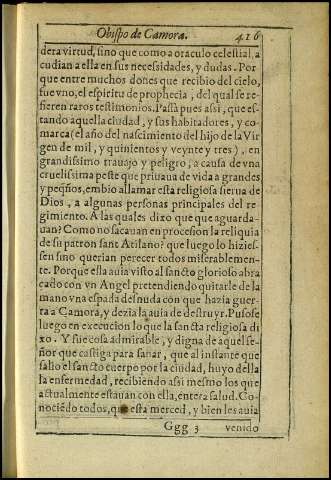 Obispo de Camora. 416
dera virtud, sino que como a oraculo celestial, a
cudian a ella en sus necesidades, y dudas. Por
que entre muchos dones que recibio del cielo,
fue vno, el espiritu de prophecia, del qual se re-
fieren raros testimonios. Passa pues assi, que es-
tando aquella ciudad, y sus habitadores, y co-
marca (el año del nascimiento del hijo de la Vir
gen de mil, y quinientos y veynte y tres), en
grandissimo trauajo y peligro, a causa de vna
cruelissima peste que priuaua de vida a grandes
y peqños, embio allamar esta religiosa sierua de
Dios, a algunas personas principales del re-
gimiento. A las quales dixo que que aguarda-
uan? Como no sacauan en procesion la reliquia
de su patron sant Atilano? que luego lo hizies-
sen sino querian perecer todos miserablemen-
te. Porque ella auia visto al sancto glorioso abra
cado con vn Angel pretendiendo quitarle de la
mano vna espada desnuda con que hazia guer-
ra a Camora, y dezia la auia de destruyr. Pusose
luego en execucion lo que la sancta religiosa di
xo. Y fue cosa admirable, y digna de aquel se-
ñor que castiga para sanar, que al instante que
salio el sancto cuerpo por la ciudad, huyo della
la enfermedad, recibiendo assi mesmo los que
actualmente estauan con ella, entera salud. Co-
nociēdo todos, que esta merced, y bien les auia
Ggg 3 venido